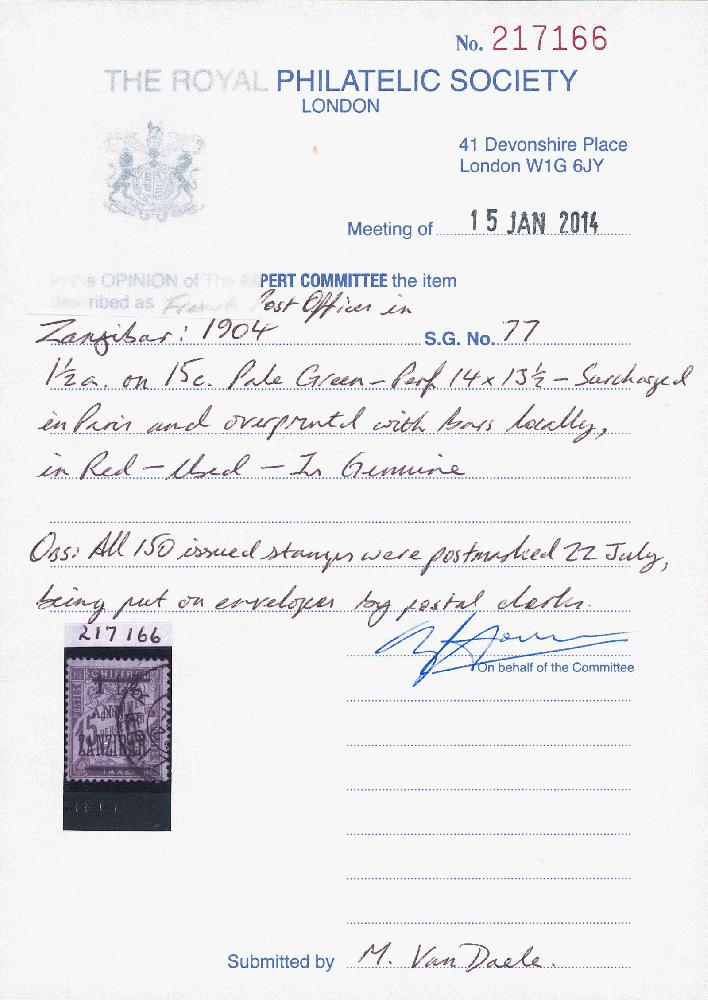 No. 217166
THE ROYAL PHILATELIC SOCIETY
LONDON
41 Devonshire Place
London W1G 6JY
Meeting of 15 JAN 2014
In the OPINION of The EXPERT COMMITTEE the item
described as French Post Offices in
Zanzibar: 1904 S.G. No. 77
1½a. on 15c. Pale Green - Perf 14 x 13½ - Surcharged
in Paris and overprinted with bars locally,
in Red - Used - Is Genuine
Obs: All 150 issued stamps were postmarked 22 July,
being put on envelopes by postal clerks.
217166
On behalf of the Committee
CHIFFRE
POSTES
ANNA
15
ZANZIBAR
Submitted by M. Van Daele.